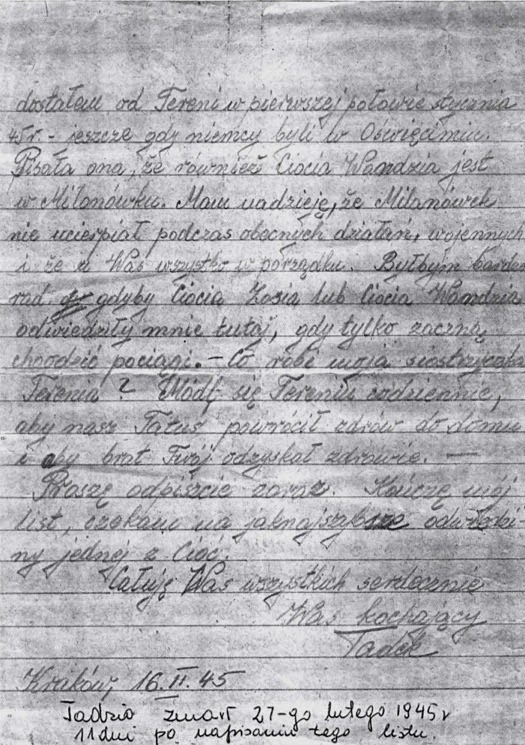 dostałem od Tereni w pierwszej połowie stycznia
45r - jeszcze gdy niemcy byli w Oświęcimiu.
Pisała ona, że również Ciocia Wandzia jest
w Milanówku. Mam nadzieję, że Milanówek
nie ucierpiał podczas obecnych działań, wojennych
i że u Was wszystko w porządku. Byłbym bardzo
rad gdyby Ciocia Zosia lub Ciocia Wandzia
odwiedziły mnie tutaj, gdy tylko zaczną
choodzić pociągi. - Co robi moja siostrzyczka
Terenia? Módl się Tereniu codziennie,
aby nasz Tatuś powrócił zdrów do domu
i aby brat Twój odzyskał zdrowie. -
Proszę odpiszcie zaraz. Kończę mój
list, czekam na jaknajszybsze odwiedzi
ny jednej z Cioć.
Całuję Was wszystkich serdecznie
Was kochający
Tadek
Kraków, 16.II.45
Tadzio zmarł 27-go lutego 1945r
11 dni po napisaniu tego listu.